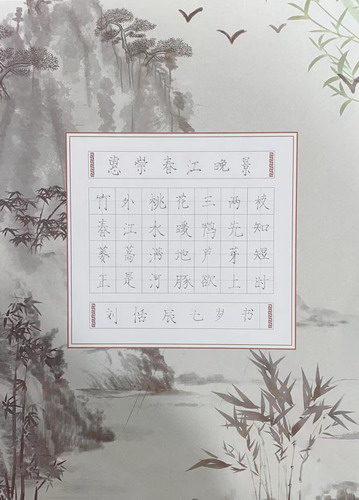 惠崇春江晚景
竹外桃花三两枝
春江水暖鸭先知
蒌蒿满地芦芽短
正是河豚欲上时
刘恬辰七岁书